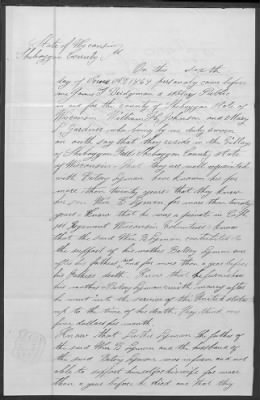 State of Wisconsin
Sheboygan County ss
On this Sixth
day of June AD 1864 personaly came before
me James F Bridgman a Notary Public
in and for the county of Sheboygan State of
Wisconsin William H. Johnson and Mary
Gardner who being by me duly sworn
on oath say that they reside in the Village
of Sheboygan Falls Sheboygan County State
of Wisconsin they are well acquainted
with Betsey Lyman have known her for
more than twenty years that they knew
her son Wm B Lyman for more than twenty
years Know that he was a private in Co H
1st Regiment Wisconsin Volunteers know
that the said Wm B Lyman contributed to
the support of his mother Betsey Lyman
after his fathers and for more than a year before
his fathers death Know that he furnished
his mother Betsey Lyman with money after
he went into the service of the United States
up to the time of his death. They think no
five dollars per month
Know that Lyman the father of
the said Wm B Lyman and the husband of
the said Betsey Lyman was infirm and not
able to support himself or his wife for more
than a year before he died and that they